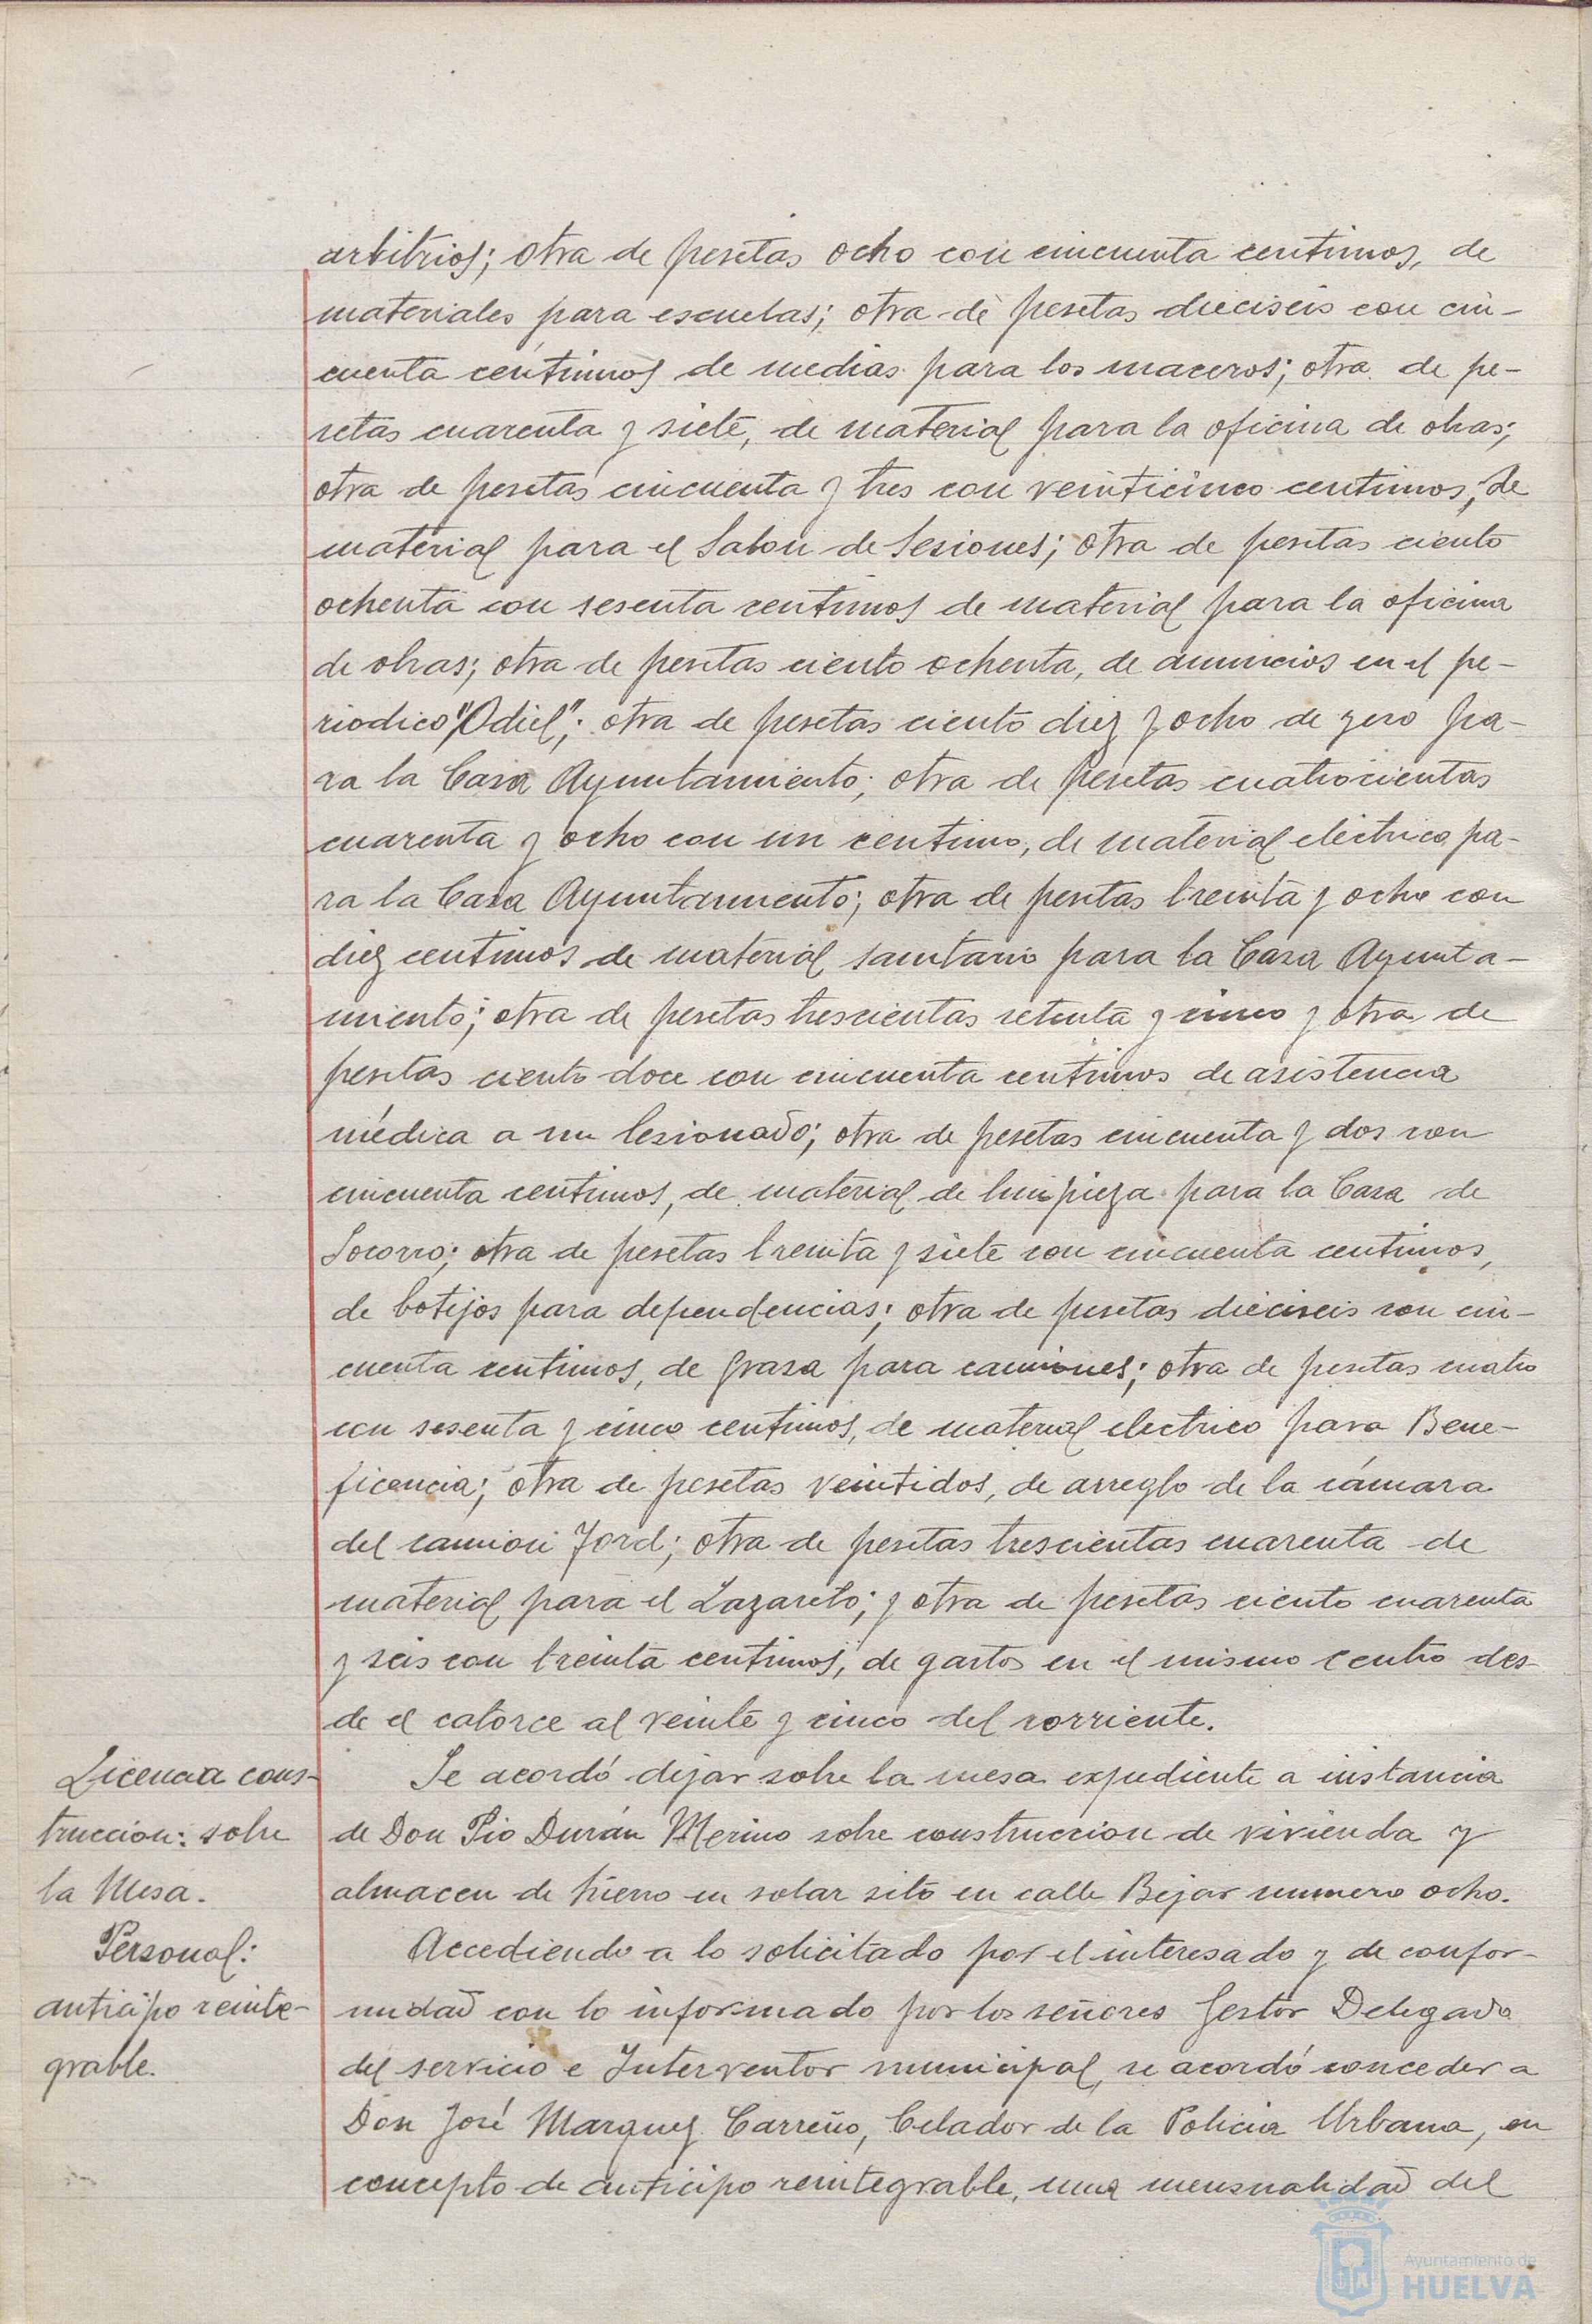 arbitrios; otra de pesetas ocho con cincuenta centimos, de
materiales para escuelas; otra de pesetas dieciseis con cin-
cuenta centimos de medias para los maceros; otra de pe-
setas cuarenta y siete, de material para la oficina de obras;
otra de pesetas cincuenta y tres con veinticinco centimos, de
material para el Salon de Sesiones; otra de pesetas ciento
ochenta con sesenta centimos de material para la oficina
de obras; otra de pesetas ciento ochenta, de anuncios en el pe-
riodico "Odiel"; otra de pesetas ciento diez y ocho de yeso pa-
ra la Casa Ayuntamiento; otra de pesetas cuatrocientas
cuarenta y ocho con un centimo, de material eléctrico pa-
ra la Casa Ayuntamiento; otra de pesetas treinta y ocho con
diez centimos de material sanitario para la Casa Ayunta-
miento; otra de pesetas trescientas setenta y cinco y otra de
pesetas ciento doce con cincuenta centimos de asistencia
médica a un lesionado; otra de pesetas cincuenta y dos con
cincuenta centimos, de material de limpieza para la Casa de
Socorro; otra de pesetas treinta y siete con cincuenta centimos,
de botijos para dependencias; otra de pesetas dieciseis con cin-
cuenta centimos, de grasa para camiones; otra de pesetas cuatro
con sesenta y cinco centimos, de material electrico para Bene-
ficencia; otra de pesetas veintidos, de arreglo de la cámara
del camion Ford; otra de pesetas trescientas cuarenta de
material para el Lazareto; y otra de pesetas ciento cuarenta
y seis con treinta centimos, de gastos en el mismo centro des-
de el catorce al veinte y cinco del corriente.
Licencia cons-
truccion: sobre
la Mesa.
Se acordó dejar sobre la mesa expediente a instancia
de Don Pio Durán Merino sobre construccion de vivienda y
almacen de hierro en solar sito en calle Bejar numero ocho.
Personal:
anticipo reinte-
grable.
Accediendo a lo solicitado por el interesado y de confor-
midad con lo informado por los señores Gestor Delegado
del servicio e Interventor municipal, se acordó conceder a
Don José Marquez Carreño, Celador de la Policia Urbana, en
concepto de anticipo reintegrable, una mensualidad del
Ayuntamiento de
HUELVA